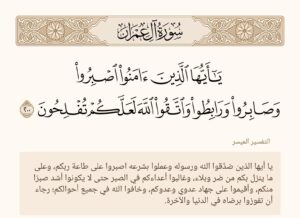 سُورَةُ آلِ عِمْرَانَ
يَٰٓأَيُّهَا ٱلَّذِينَ ءَامَنُوا۟ ٱصْبِرُوا۟
وَصَابِرُوا۟ وَرَابِطُوا۟ وَٱتَّقُوا۟ ٱللَّهَ لَعَلَّكُمْ تُفْلِحُونَ ٢٠٠
التفسير الميسر
يا أيها الذين صدَّقوا الله ورسوله وعملوا بشرعه اصبروا على طاعة ربكم، وعلى
ما ينزل بكم من ضر وبلاء، وغالبوا أعداءكم في الصبر حتى لا يكونوا أشد صبرًا
منكم، وأقيموا على جهاد عدوي وعدوكم، وخافوا الله في جميع أحوالكم؛ رجاء
أن تفوزوا برضاه في الدنيا والآخرة.